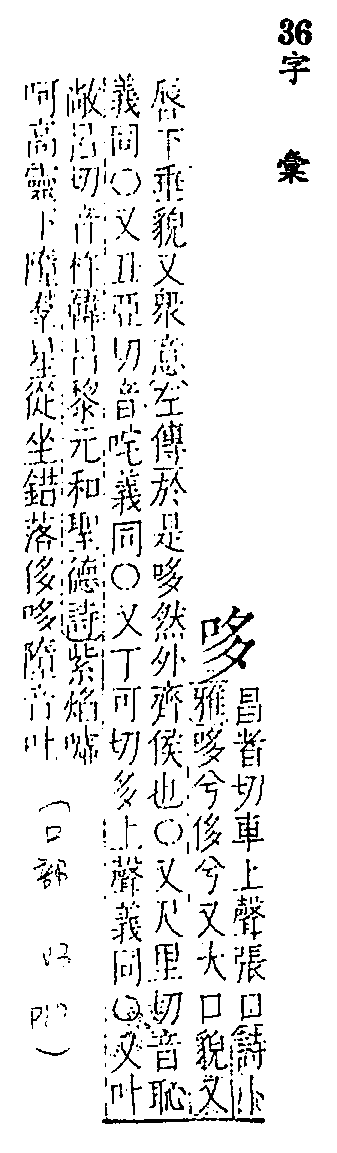 36
字彙
哆
昌者切車上聲張口詩小
雅哆兮侈兮又大口貌又
唇下垂貌又衆意左傳於是哆然外齊侯也○又尺里切音恥
義同○又丑亞切音咤義同○又丁可切多上聲義同○又叶
敞呂切音杵韓呂黎元和聖德詩紫焰噓
呵高靈下隋羣星從坐錯落侈哆隋音叶
(口部